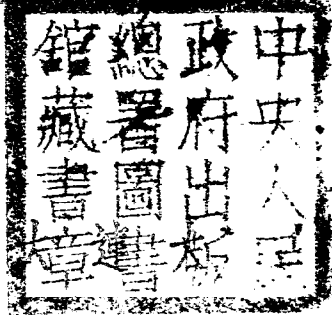 中央人民
政府出版
總署圖書
館藏書章